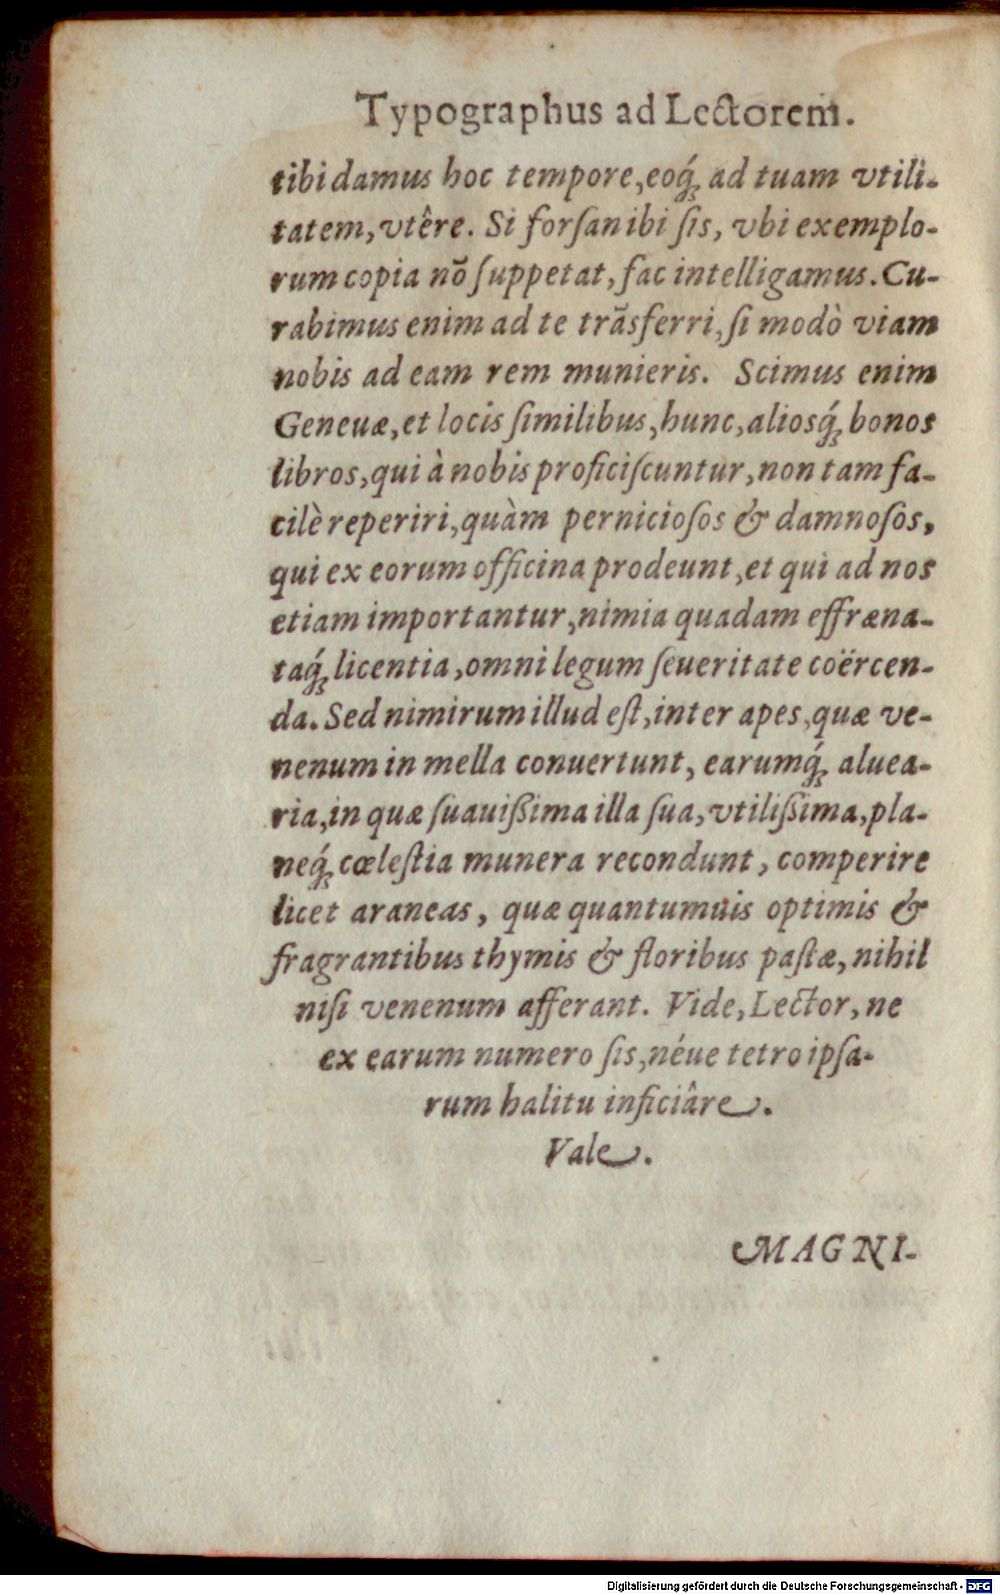 Typographus ad Lectorem.
tibi damus hoc tempore, eoq́; ad tuam vtili-
tatem, vtêre. Si forſan ibi ſis, vbi exemplo-
rum copia nō ſuppetat, fac intelligamus. Cu-
rabimus enim ad te trāsferri, ſi modò viam
nobis ad eam rem munieris. Scimus enim
Geneuæ, et locis ſimilibus, hunc, aliosq́; bonos
libros, qui à nobis proficiſcuntur, non tam fa-
cilè reperiri, quàm pernicioſos & damnoſos,
qui ex eorum officina prodeunt, et qui ad nos
etiam importantur, nimia quadam effræna-
taq́; licentia, omni legum ſeueritate coërcen-
da. Sed nimirum illud eſt, inter apes, quæ ve-
nenum in mella conuertunt, earumq́; aluea-
ria, in quæ ſuauißima illa ſua, vtilißima, pla-
neq́; cœleſtia munera recondunt, comperire
licet araneas, quæ quantumuis optimis &
fragrantibus thymis & floribus paſtæ, nihil
niſi venenum afferant. Vide, Lector, ne
ex earum numero ſis, néue tetro ipſa-
rum halitu inficiâre.
Vale.
MAGNI-
Digitalisierung gefördert durch die Deutsche Forschungsgemeinschaft - DFG